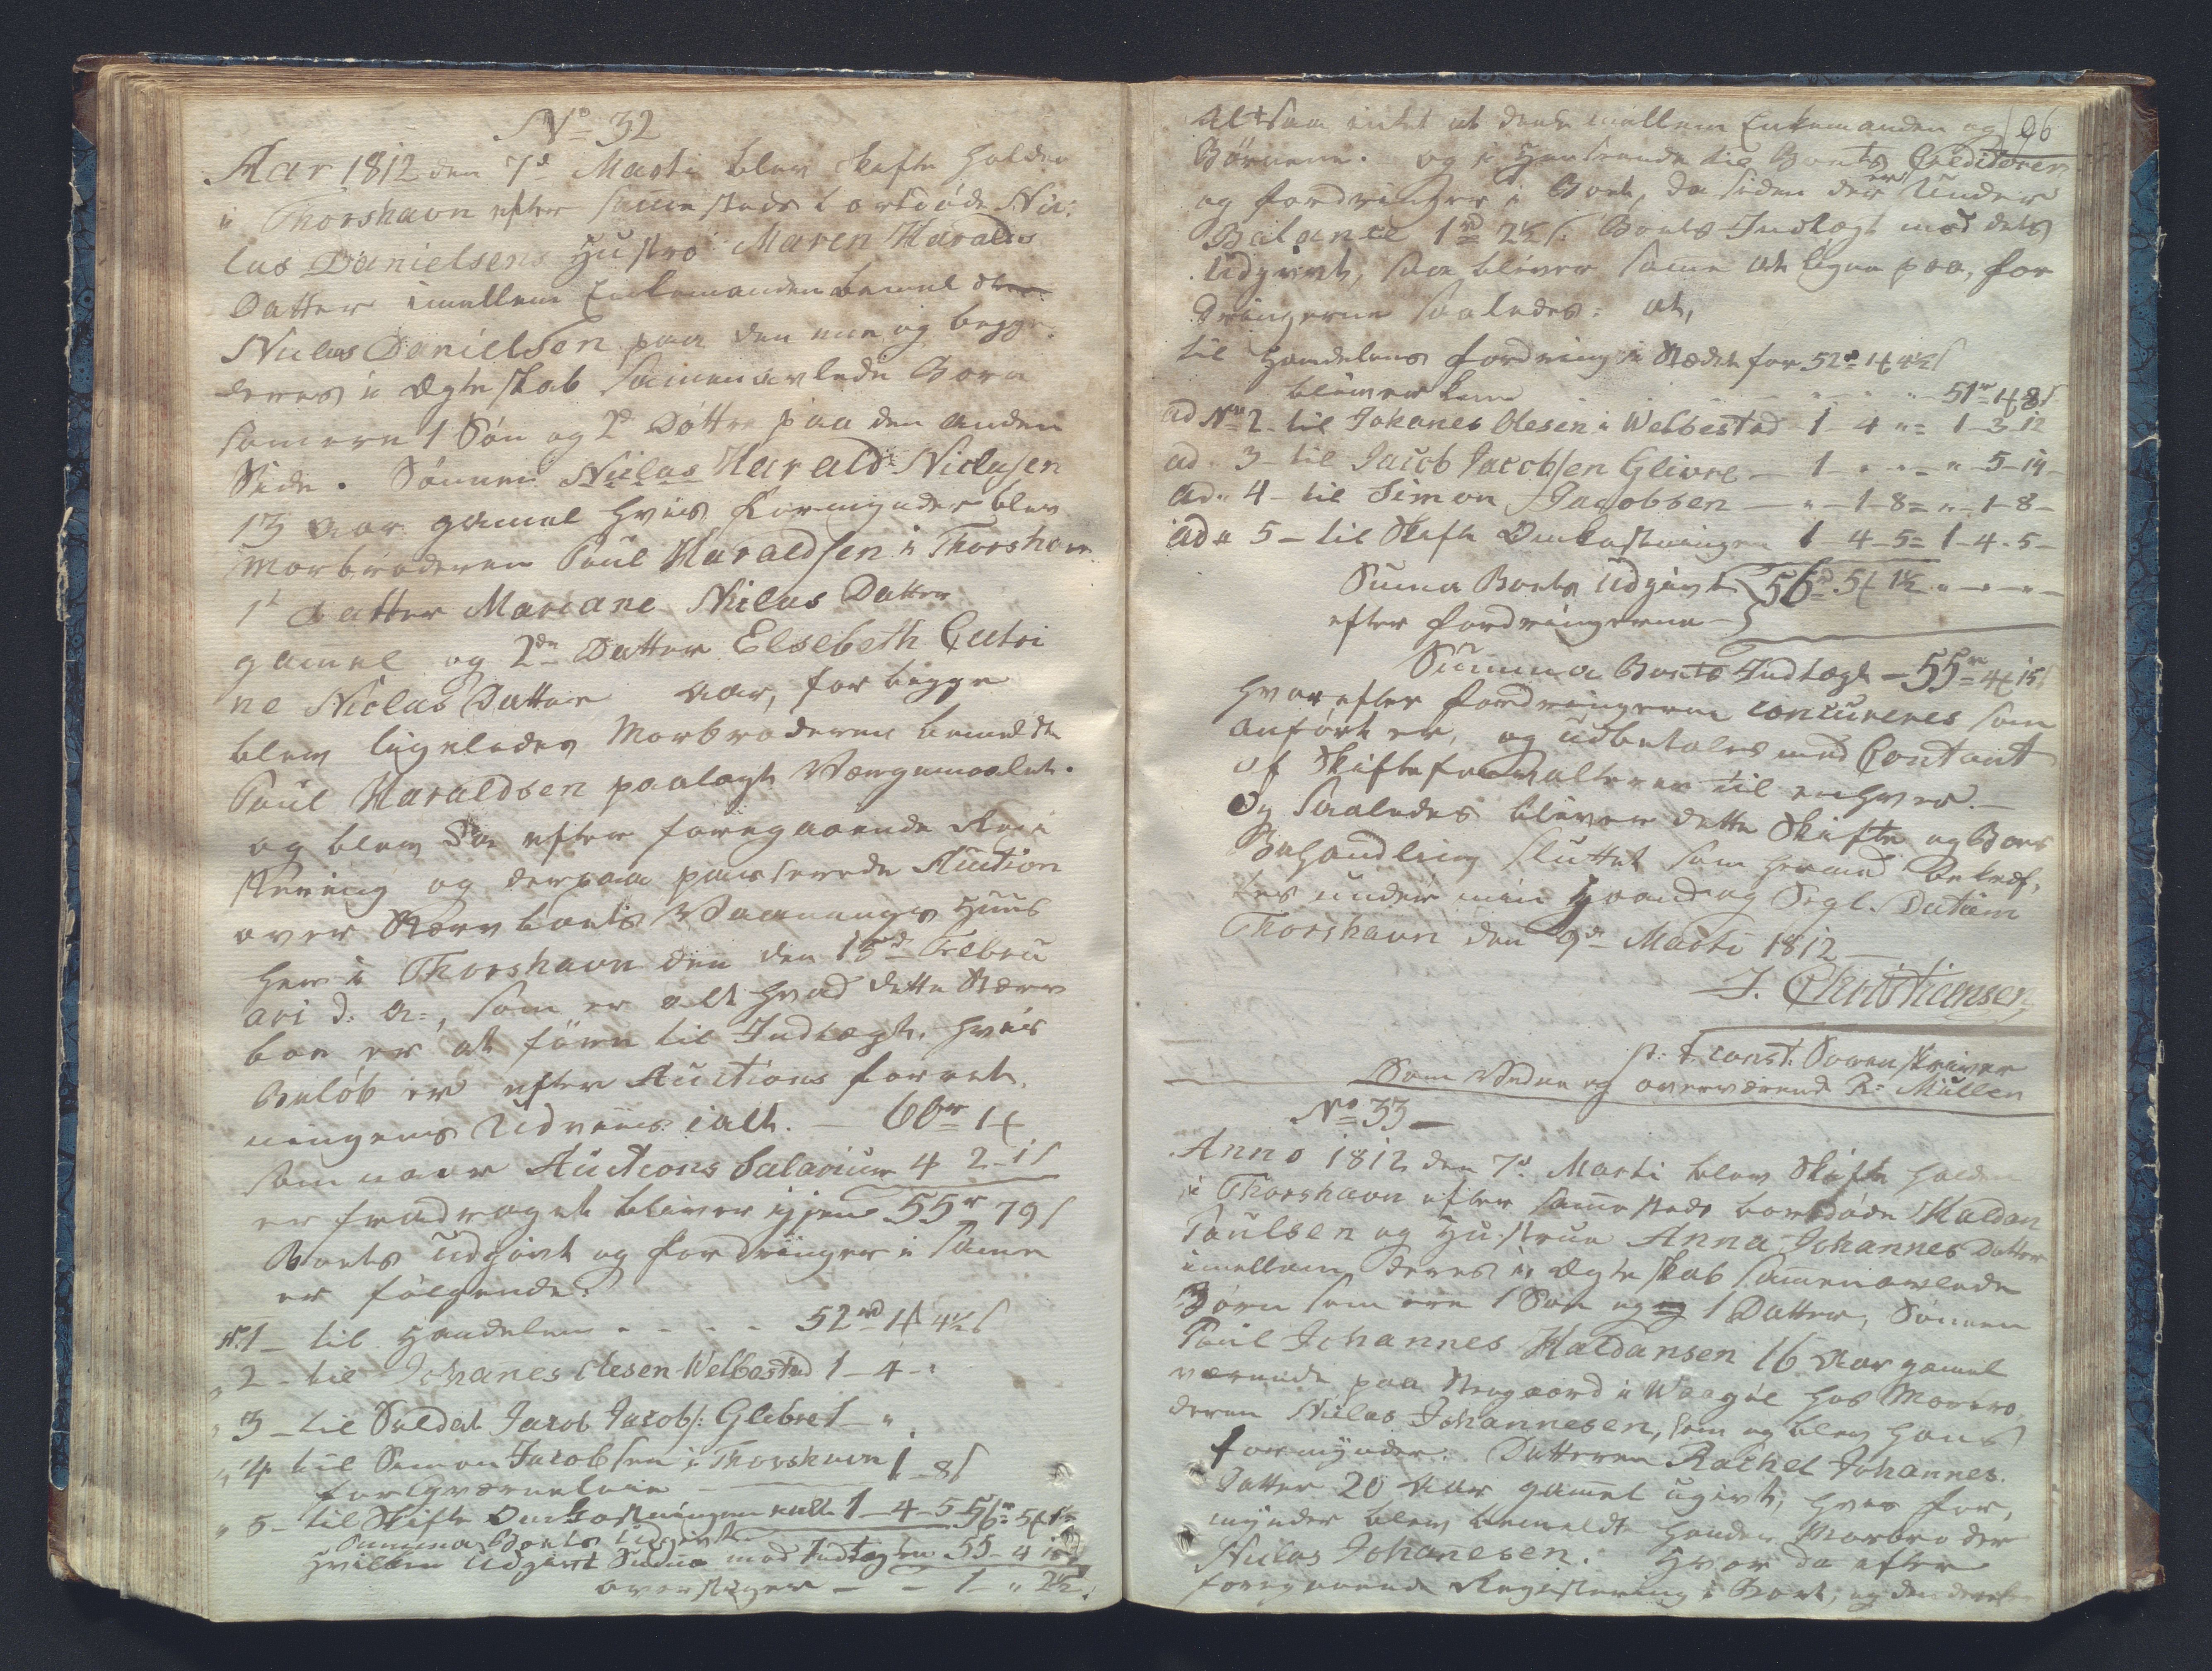 No 32
Aar 1812 den 7de Marti blev Skifte holden
i Thorshavn efter samme steds bortdøde Nic:
las Danielsens Hustro Maren Haralds
Datter imellem Enkemanden bemelte
Niclas Danielsen paa den ene og begge
deres i Ægteskab sammenavlede Børn
som ere 1 Søn og 2de Døttre paa den anden
Side. Sønnen Niclas Harald Niclasen
13 Aar gamel hvis Formynder blev
Morbroderen Poul Haraldsen i Thorshavn
1te Datter Mariane Niclas Datter
gamel og 2den Datter Elsebeth Cutri
ne Niclas Datter Aar, for begge
blev ligeledes Morbroderen bemeldte
Poul Haraldsen paalagt Værgemaalet.
og blev da efter foregaaende Regi
strering og derpaa passerede Auction
over Stervboets Vaanings Huus
her i Thorshavn den 15de Febru
ari d: A:, som er alt hvad dette Sterv
boe er at føre til Indtægt, hvis
Beløb er efter Auctions forret
ningens Udviis ialt. — 60rd 1#
som naar Auctions Salarium 4 2-1s
er fradraget bliver igjen 55r 79s
Boets Udgivt og fordringer i samme
er følgende:
No.1 — til Handelen . . . . 52rd 1# 4½s
" 2 — til Johanes Olesen Welbestad 1—4—"
" 3 — til Soldat Jacob Jacobs: Glibre 1—"
" 4 til Simon Jacobsen i Thorshavn 1—8s
" 5 — til Skifte Omkostningen ialt 1—4—5 56rd 5# 1½
Summa Boets Udgivt
hvilken Udgivt Summa med Indtægten 55—4 15
overstiger — — 1— " 2½.
96
Altsaa intet at deele imellem Enkemanden og
Børnene. og i Henseende til Boets Creditorer
og fordringer i Boet, da siden der er Under
Balance 1rd 2½s. Boets Indtægt mod dets
Udgivt, saa bliver samme at ligne paa, for
dringerne saaledes: at,
til Handelens fordring i Stædet for 52rd 1# 4½s
bliver kun . . . . . 51rd 1# 8s
ad No 2 — til Johanes Olesen i Welbestad 1—4 "= 1—3—12
ad " 3 — til Jacob Jacobsen Glivre — 1 — " — " — " —5—14—
ad " 4 — til Simon Jacobsen — " —1—8= " —1—8—
ad " 5 — til Skifte Omkostningen 1—4—5= 1—4—5—
Suma Boets Udgivt 56rd 5# 1½ " — " — " —
efter fordringerne —
Summa Boets Indtægt — 55rd 4# 15s
hvorefter fordringerne concureres som
anført er, og udbetales med Contant
af Skifteforvalteren til enhver. —
Og saaledes bliver dette Skifte og Boes
Behandling sluttet som hermed Bekræf,
tes under min Haand og Segl. Datum
Thorshavn den 9de Marti 1812
J. Christiansen
p: t: const: Sorenskriver
Som Vidne og overværende R: Müller
No 33 —
Anno 1812 den 7de Marti blev Skifte holden
i Thorshavn efter samme steds bortdøde Haldan
Poulsen og Hustrue Anna Johannes Datter
imellem deres i Ægteskab sammenavlede
Børn som ere 1 Søn og og 1 Datter, Sønnen
Poul Johannes Haldansen 16 Aar gamel
værende paa Steegaard i Waagøe hos Morbro
deren Niclas Johannesen, som og blev hans
formynder: Datteren Rachel Johannes.
Datter 20 Aar gamel ugivt, hvis for,
mynder blev bemeldte hendes Morbroder
Niclas Johanesen. Hvor da efter
foregaaende Registrering i Boet, og den derefter